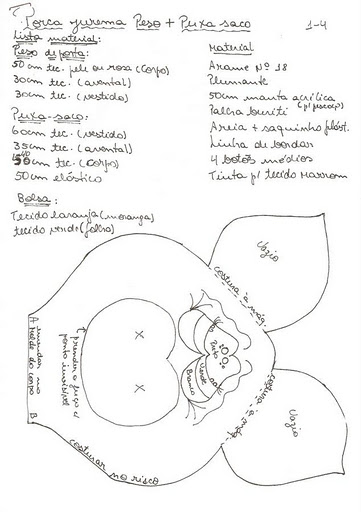 Porca Jurema Peso + Puxa saco
1-4
Lista material:
Peso de porta:
50 cm tec. pele ou rosa (Corpo)
30cm tec. (avental)
30cm tec. (vestido)
Puxa-saco:
60cm tec. (vestido)
35cm tec. (avental)
50cm tec. (corpo)
50cm elástico
Bolsa:
Tecido laranja (moranga)
tecido verde (folha)
Material
Arame Nº 18
Plumante
50cm manta acrílica
(p/ pescoço)
Palha buriti
Areia + saquinho plást.
Linha de bordar
4 botões médios
Tinta p/ tecido marrom
Vazio
costura à máq.
Preto
Verde
Branco
costura à máq.
Vazio
A emendar no
molde do corpo B
prender o fuço c/
ponto invisível
X
X
costurar no risco